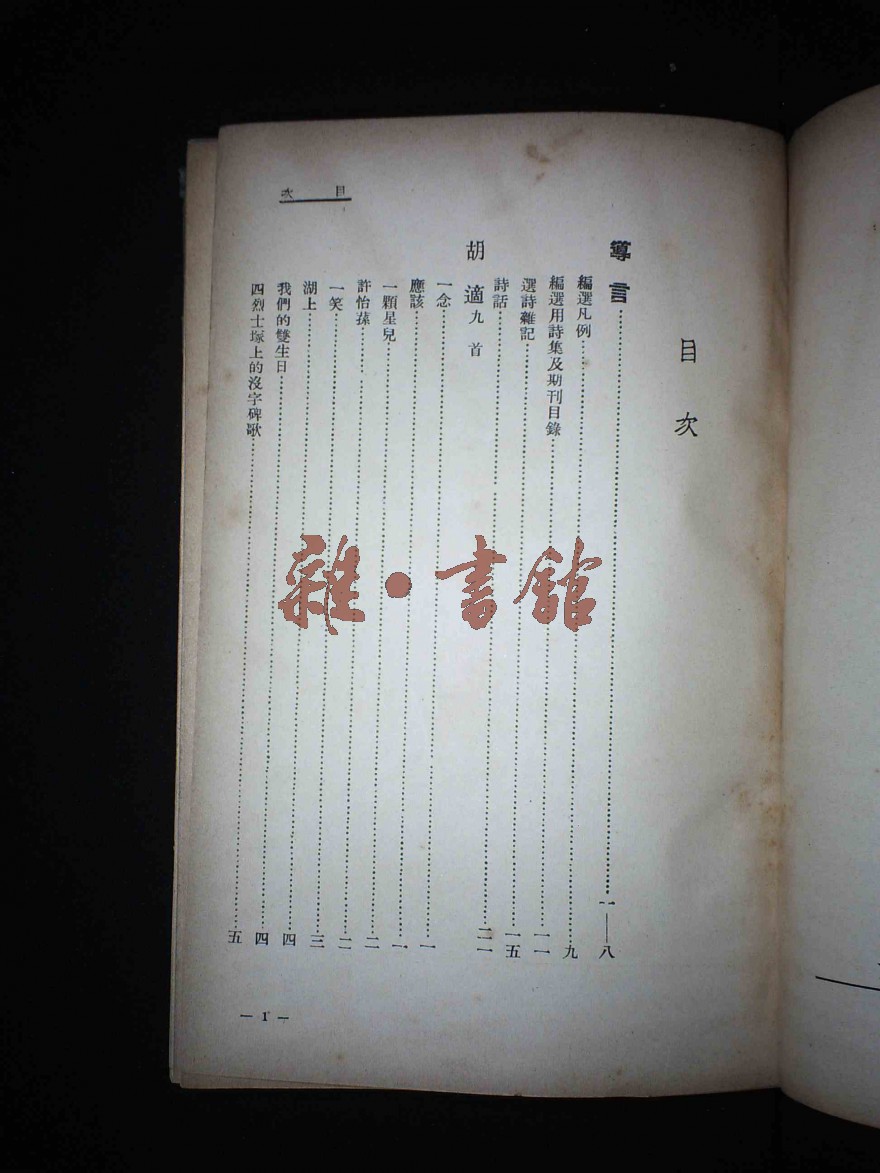 目次
目次
導言……一——八
編選凡例……九
編選用詩集及期刊目錄……一一
選詩雜記……一五
詩話……二一
胡適九首
一念……一
應該……一
一顆星兒……二
許怡蓀……二
一笑……三
湖上……四
我們的雙生日……四
四烈士塚上的沒字碑歌……五
雜·書館
— 1 —